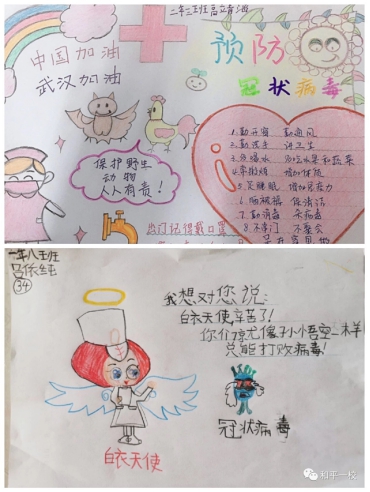 二年三班
中国加油
武汉加油
预防
冠状病毒
保护野生
动物
人人有责！
1.勤开窗 勤通风
2.勤洗手 讲卫生
3.多喝水 多吃水果和蔬菜
4.常锻炼 增加体质
5.足睡眠 增加免疫力
6.晒被褥 保清洁
7.勤消毒 杀病毒
8.不串门 不聚会
出门记得戴口罩
一年八班
吕依纯
34
我想对您说：
白衣天使辛苦了！
你们就像孙悟空一样
总能打败病毒！
冠状病毒
白衣天使
和平一校